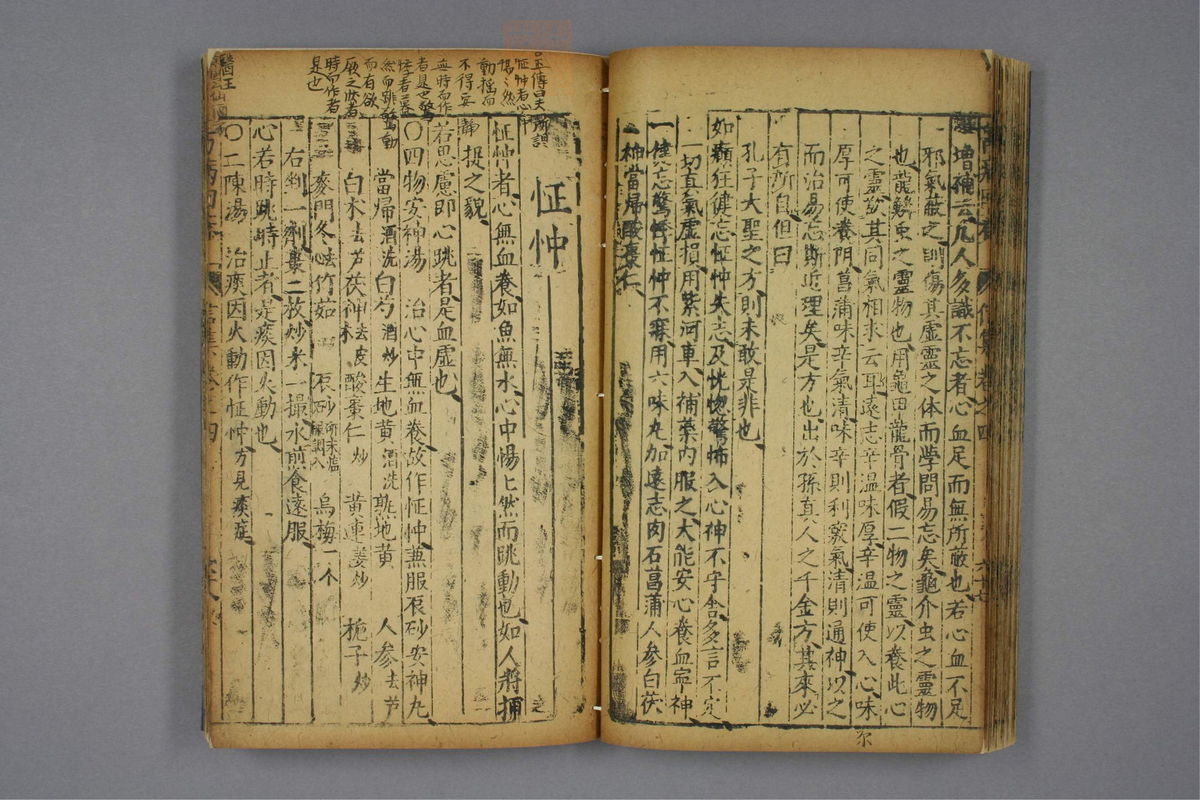 增補云凡人多識不忘者心血足而無所蔽也若心血不足
邪氣蔽之則傷其虛靈之体而學問易忘矣龜介虫之靈物
也龍鱗虫之靈物也用龜田龍骨者假二物之靈以養此心
之靈欲其同氣相求云耳遠志辛温味厚辛温可使入心味
厚可使養阴菖蒲味辛氣清味辛則利竅氣清則通神以之
而治易忘斯近理矣是方也出於孫真人之千金方其來必
有所自但曰
孔子大聖之方則未敢是非也
如癲狂健忘怔忡失志及恍惚驚怖入心神不守舍多言不定
一切真氣虛損用紫河車入補藥内服之大能安心養血寧神
一健忘驚悸怔忡不寐用六味丸加遠志肉石菖蒲人參白茯
神當歸酸棗仁
怔忡
怔忡者心無血養如魚無水心中惕上然而跳動也如人將捕
捉之貌
若思慮即心跳者是血虛也
〇四物安神湯 治心中無血養故作怔忡兼服辰砂安神丸
當歸酒洗 白勺酒炒 生地黄酒洗 熟地黄 人參去芦
白术去芦 茯神去皮木 酸棗仁炒 黄連姜炒 梔子炒
麥門冬去心 竹茹 辰砂研末臨服調入 烏梅一个
右剉一劑棗二枚炒米一撮水煎食遠服
心若時跳時止者是痰因火動也
〇二陳湯 治痰因火動作怔忡方見痰症
正傳曰夫所謂
怔忡者心中
惕惕然
動摇而
不得安
靜
無時而作
者是也驚
悸者驀
然而跳驚動
而有欲
厥之狀者
時而作者
是也